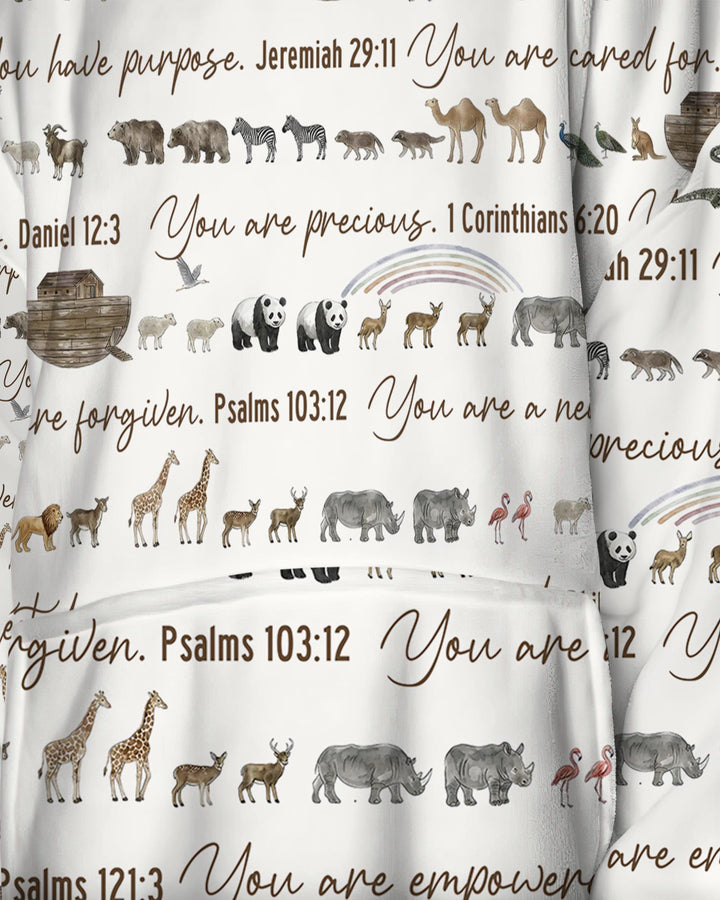 you have purpose. Jeremiah 29:11 You are cared for.
. Daniel 12:3 You are precious. 1 Corinthians 6:20
29:11
are forgiven. Psalms 103:12 You are a
precious
forgiven. Psalms 103:12 You are
:12
Psalms 121:3 You are
are